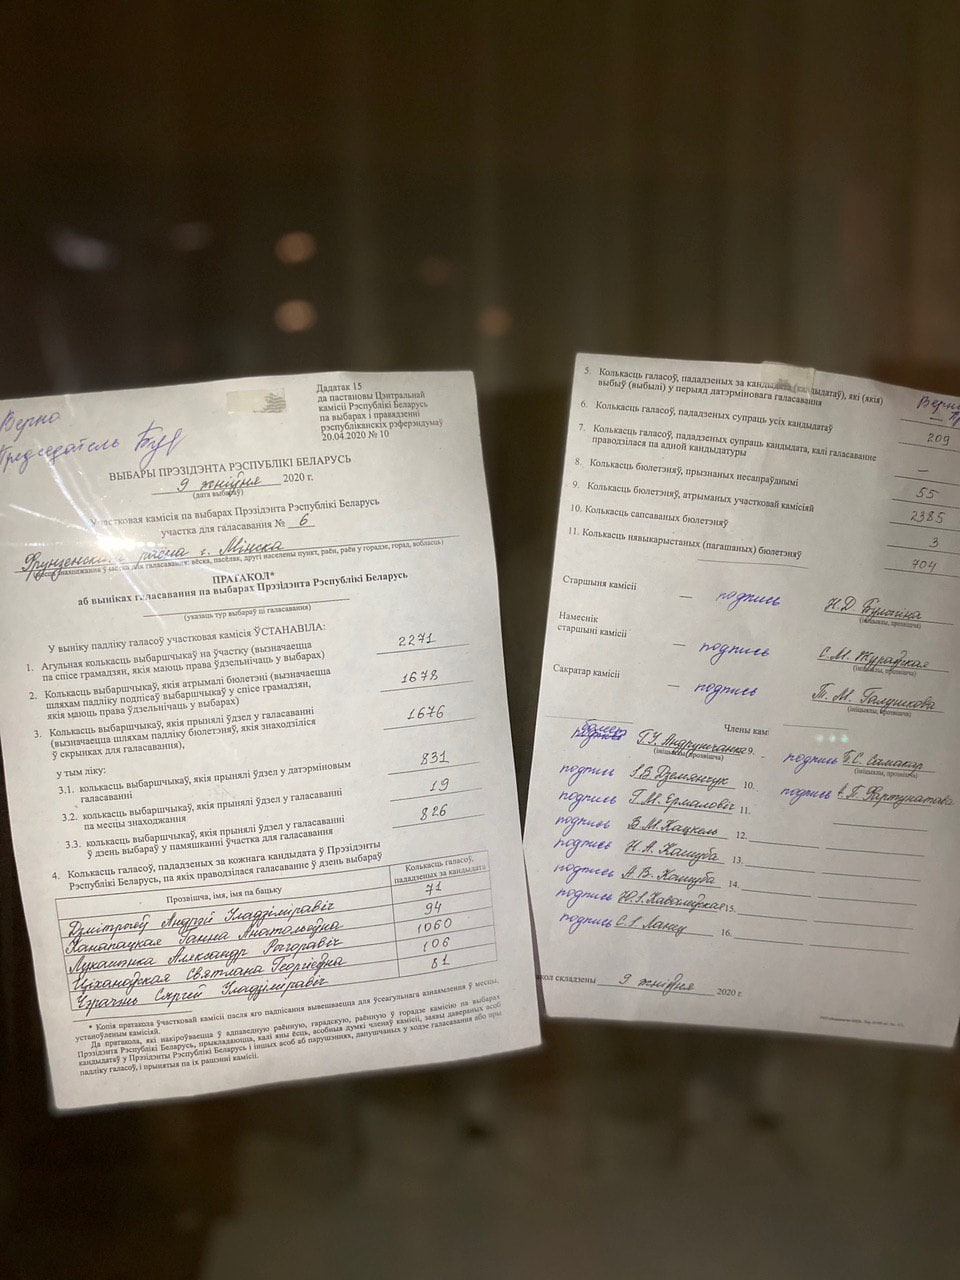 Верно
Председатель
Дадатак 15
да пастановы Цэнтральнай
камісіі Рэспублікі Беларусь
па выбарах і правядзенні
рэспубліканскіх рэферэндумаў
20.04.2020 № 10
ВЫБАРЫ ПРЭЗІДЭНТА РЭСПУБЛІКІ БЕЛАРУСЬ
9 жніўня 2020 г.
(дата выбараў)
Участковая камісія па выбарах Прэзідэнта Рэспублікі Беларусь
участка для галасавання № 6
Фрунзенскага раёна г. Мінска
знаходжання ўчастка для галасавання: вёска, пасёлак, другі населены пункт, раён, раён у горадзе, горад, вобласць)
ПРАТАКОЛ*
аб выніках галасавання па выбарах Прэзідэнта Рэспублікі Беларусь
(указаць тур выбараў ці галасавання)
У выніку падліку галасоў участковая камісія ЎСТАНАВІЛА:
1. Агульная колькасць выбаршчыкаў на ўчастку (вызначаецца
па спісе грамадзян, якія маюць права ўдзельнічаць у выбарах) 2271
2. Колькасць выбаршчыкаў, якія атрымалі бюлетэні (вызначаецца
шляхам падліку подпісаў выбаршчыкаў у спісе грамадзян,
якія маюць права ўдзельнічаць у выбарах) 1678
3. Колькасць выбаршчыкаў, якія прынялі ўдзел у галасаванні
(вызначаецца шляхам падліку бюлетэняў, якія знаходзіліся
ў скрынках для галасавання), 1676
у тым ліку:
3.1. колькасць выбаршчыкаў, якія прынялі ўдзел у датэрміновым
галасаванні 831
3.2. колькасць выбаршчыкаў, якія прынялі ўдзел у галасаванні
па месцы знаходжання 19
3.3. колькасць выбаршчыкаў, якія прынялі ўдзел у галасаванні
ў дзень выбараў у памяшканні ўчастка для галасавання 826
4. Колькасць галасоў, пададзеных за кожнага кандыдата ў Прэзідэнты
Рэспублікі Беларусь, па якіх праводзілася галасаванне ў дзень выбараў
Прозвішча, імя, імя па бацьку Колькасць галасоў,
пададзеных за кандыдата
Дмітрыеў Андрэй Уладзіміравіч 71
Канапацкая Ганна Анатольеўна 94
Лукашэнка Аляксандр Рыгоравіч 1060
Ціханоўская Святлана Георгіеўна 106
Чэрачэнь Сяргей Уладзіміравіч 81
* Копія пратакола ўчастковай камісіі пасля яго падпісання вывешваецца для ўсеагульнага азнаямлення ў месцы,
устаноўленым камісіяй.
Да пратакола, які накіроўваецца ў адпаведную раённую, гарадскую, раённую ў горадзе камісію па выбарах
Прэзідэнта Рэспублікі Беларусь, прыкладаюцца, калі яны ёсць, асобныя думкі членаў камісіі, заявы давераных асоб
кандыдатаў у Прэзідэнты Рэспублікі Беларусь і іншых асоб аб парушэннях, дапушчаных у ходзе галасавання або пры
падліку галасоў, і прынятыя па іх рашэнні камісіі.
Верно
5. Колькасць галасоў, пададзеных за кандыдата (кандыдатаў), які (якія)
выбыў (выбылі) у перыяд датэрміновага галасавання —
6. Колькасць галасоў, пададзеных супраць усіх кандыдатаў 209
7. Колькасць галасоў, пададзеных супраць кандыдата, калі галасаванне
праводзілася па адной кандыдатуры —
8. Колькасць бюлетэняў, прызнаных несапраўднымі 55
9. Колькасць бюлетэняў, атрыманых участковай камісіяй 2385
10. Колькасць сапсаваных бюлетэняў 3
11. Колькасць нявыкарыстаных (пагашаных) бюлетэняў 704
Старшыня камісіі — подпись Н.Д. Булыгина
(ініцыялы, прозвішча)
Намеснік
старшыні камісіі — подпись С.М. Жураўская
(ініцыялы, прозвішча)
Сакратар камісіі — подпись Т.М. Галушкова
(ініцыялы, прозвішча)
Члены кам
Г.У. Андрунчанка 9. подпись Г.С. Самакар
(ініцыялы, прозвішча) (ініцыялы, прозвішча)
подпись І.В. Дземянчук 10. подпись Фартунатава
подпись Г.М. Ермаловіч 11.
подпись В.М. Кацкель 12.
подпись Н.А. Кашуба 13.
подпись А.В. Кашуба 14.
подпись Ю.І. Кавалеўская 15.
подпись С.І. 16.
кол складзены 9 жніўня 2020 г.